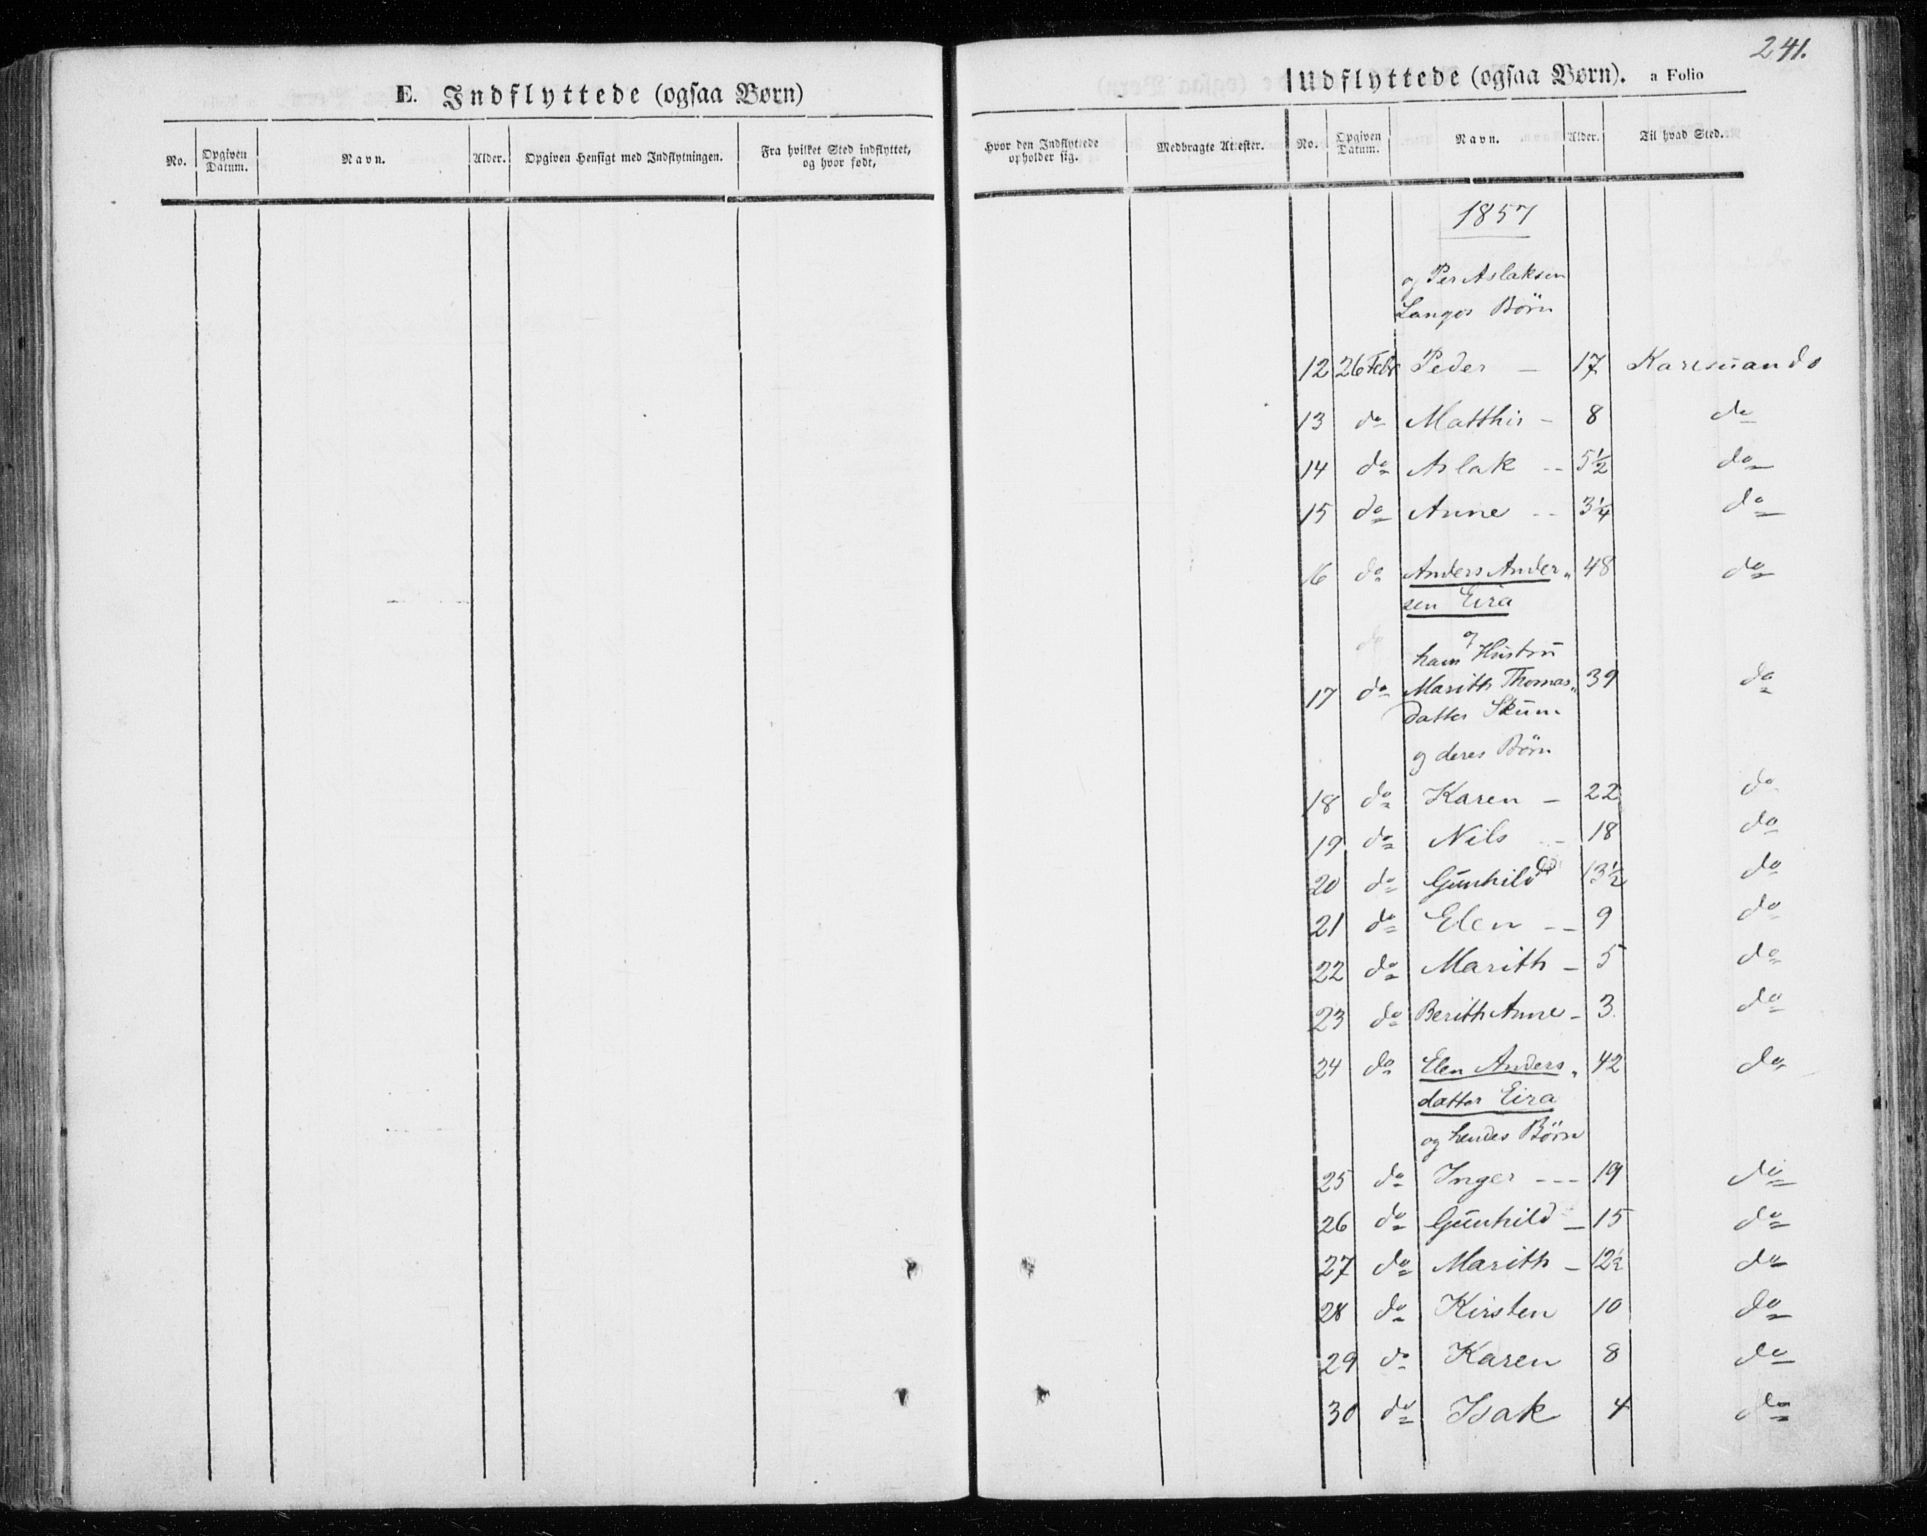 241.
E. Indflyttede (ogsaa Børn)
No. Opgiven Datum. Navn. Alder. Opgiven Hensigt med Indflytningen. Fra hvilket Sted indflyttet, og hvor født,
Hvor den Indflyttede opholder sig. Medbragte Attester.
Udflyttede (ogsaa Børn). a Folio
No. Opgiven Datum. Navn. Alder. Til hvad Sted.
1857
og Per Aslaksen
Langos Børn
12 26 Febr Peder — 17 Karesuando
13 do Matthis — 8 do
14 do Aslak -- 5½ do
15 do Anne -- 3¼ do
16 do Anders Ander- 48 do
sen Eira
og
hans Hustru
17 do Marith Thomas- 39 do
datter Skum
og deres Børn
18 do Karen — 22 do
19 do Nils -- 18 do
20 do Gunhild 13½ do
21 do Elen -- 9 do
22 do Marith — 5 do
23 do Berith Anne - 3. do
24 do Elen Anders- 42 do
datter Eira
og hendes Børn
25 do Inger --- 19 do
26 do Gunhild — 15 do
27 do Marith — 12½ do
28 do Kirsten 10 do
29 do Karen 8 do
30 do Isak 4 do